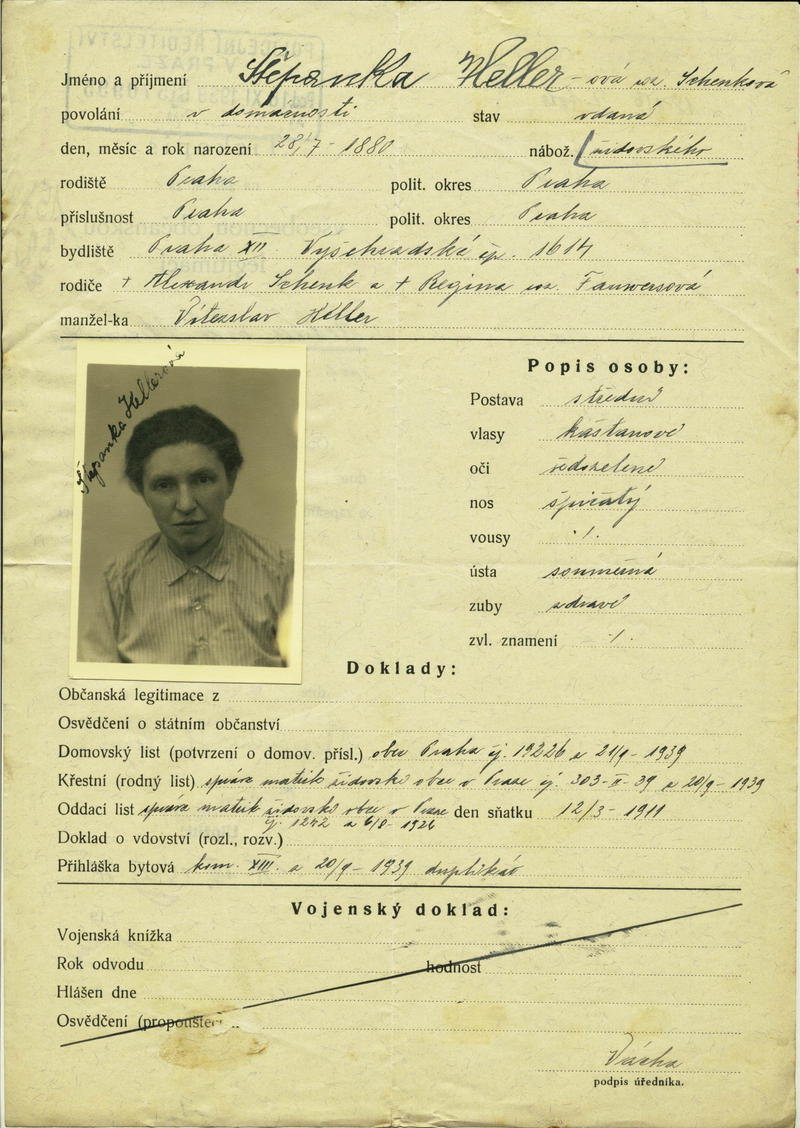 Jméno a příjmení Štěpánka Heller-ová roz. Schenková
povolání v domácnosti stav vdaná
den, měsíc a rok narození 28/7-1880 nábož. židovského
rodiště Praha polit. okres Praha
příslušnost Praha polit. okres Praha
bydliště Praha XII. Vyšehradská čp. 1614
rodiče + Alexandr Schenk a + Regina roz.
manžel-ka Vítězslav Heller
Štěpánka Hellerová
Popis osoby:
Postava střední
vlasy kaštanové
oči šedozelené
nos špičatý
vousy ·/·
ústa souměrná
zuby zdravé
zvl. znamení ·/·
Doklady:
Občanská legitimace z
Osvědčení o státním občanství
Domovský list (potvrzení o domov. přísl.) obec Praha čj. 19226 z 21/9-1939
Křestní (rodný list) správa matrik židovské obce v Praze čj. 303-II-39 z 20/9-1939
Oddací list správa matrik židovské obce v Praze den sňatku 12/3-1911
čj. 1242 z 1926
Doklad o vdovství (rozl., rozv.)
Přihláška bytová kom. XIII. z 20/9-1939 duplikát
Vojenský doklad:
Vojenská knížka
Rok odvodu hodnost
Hlášen dne
Osvědčení (propouštěcí
Vácha
podpis úředníka.